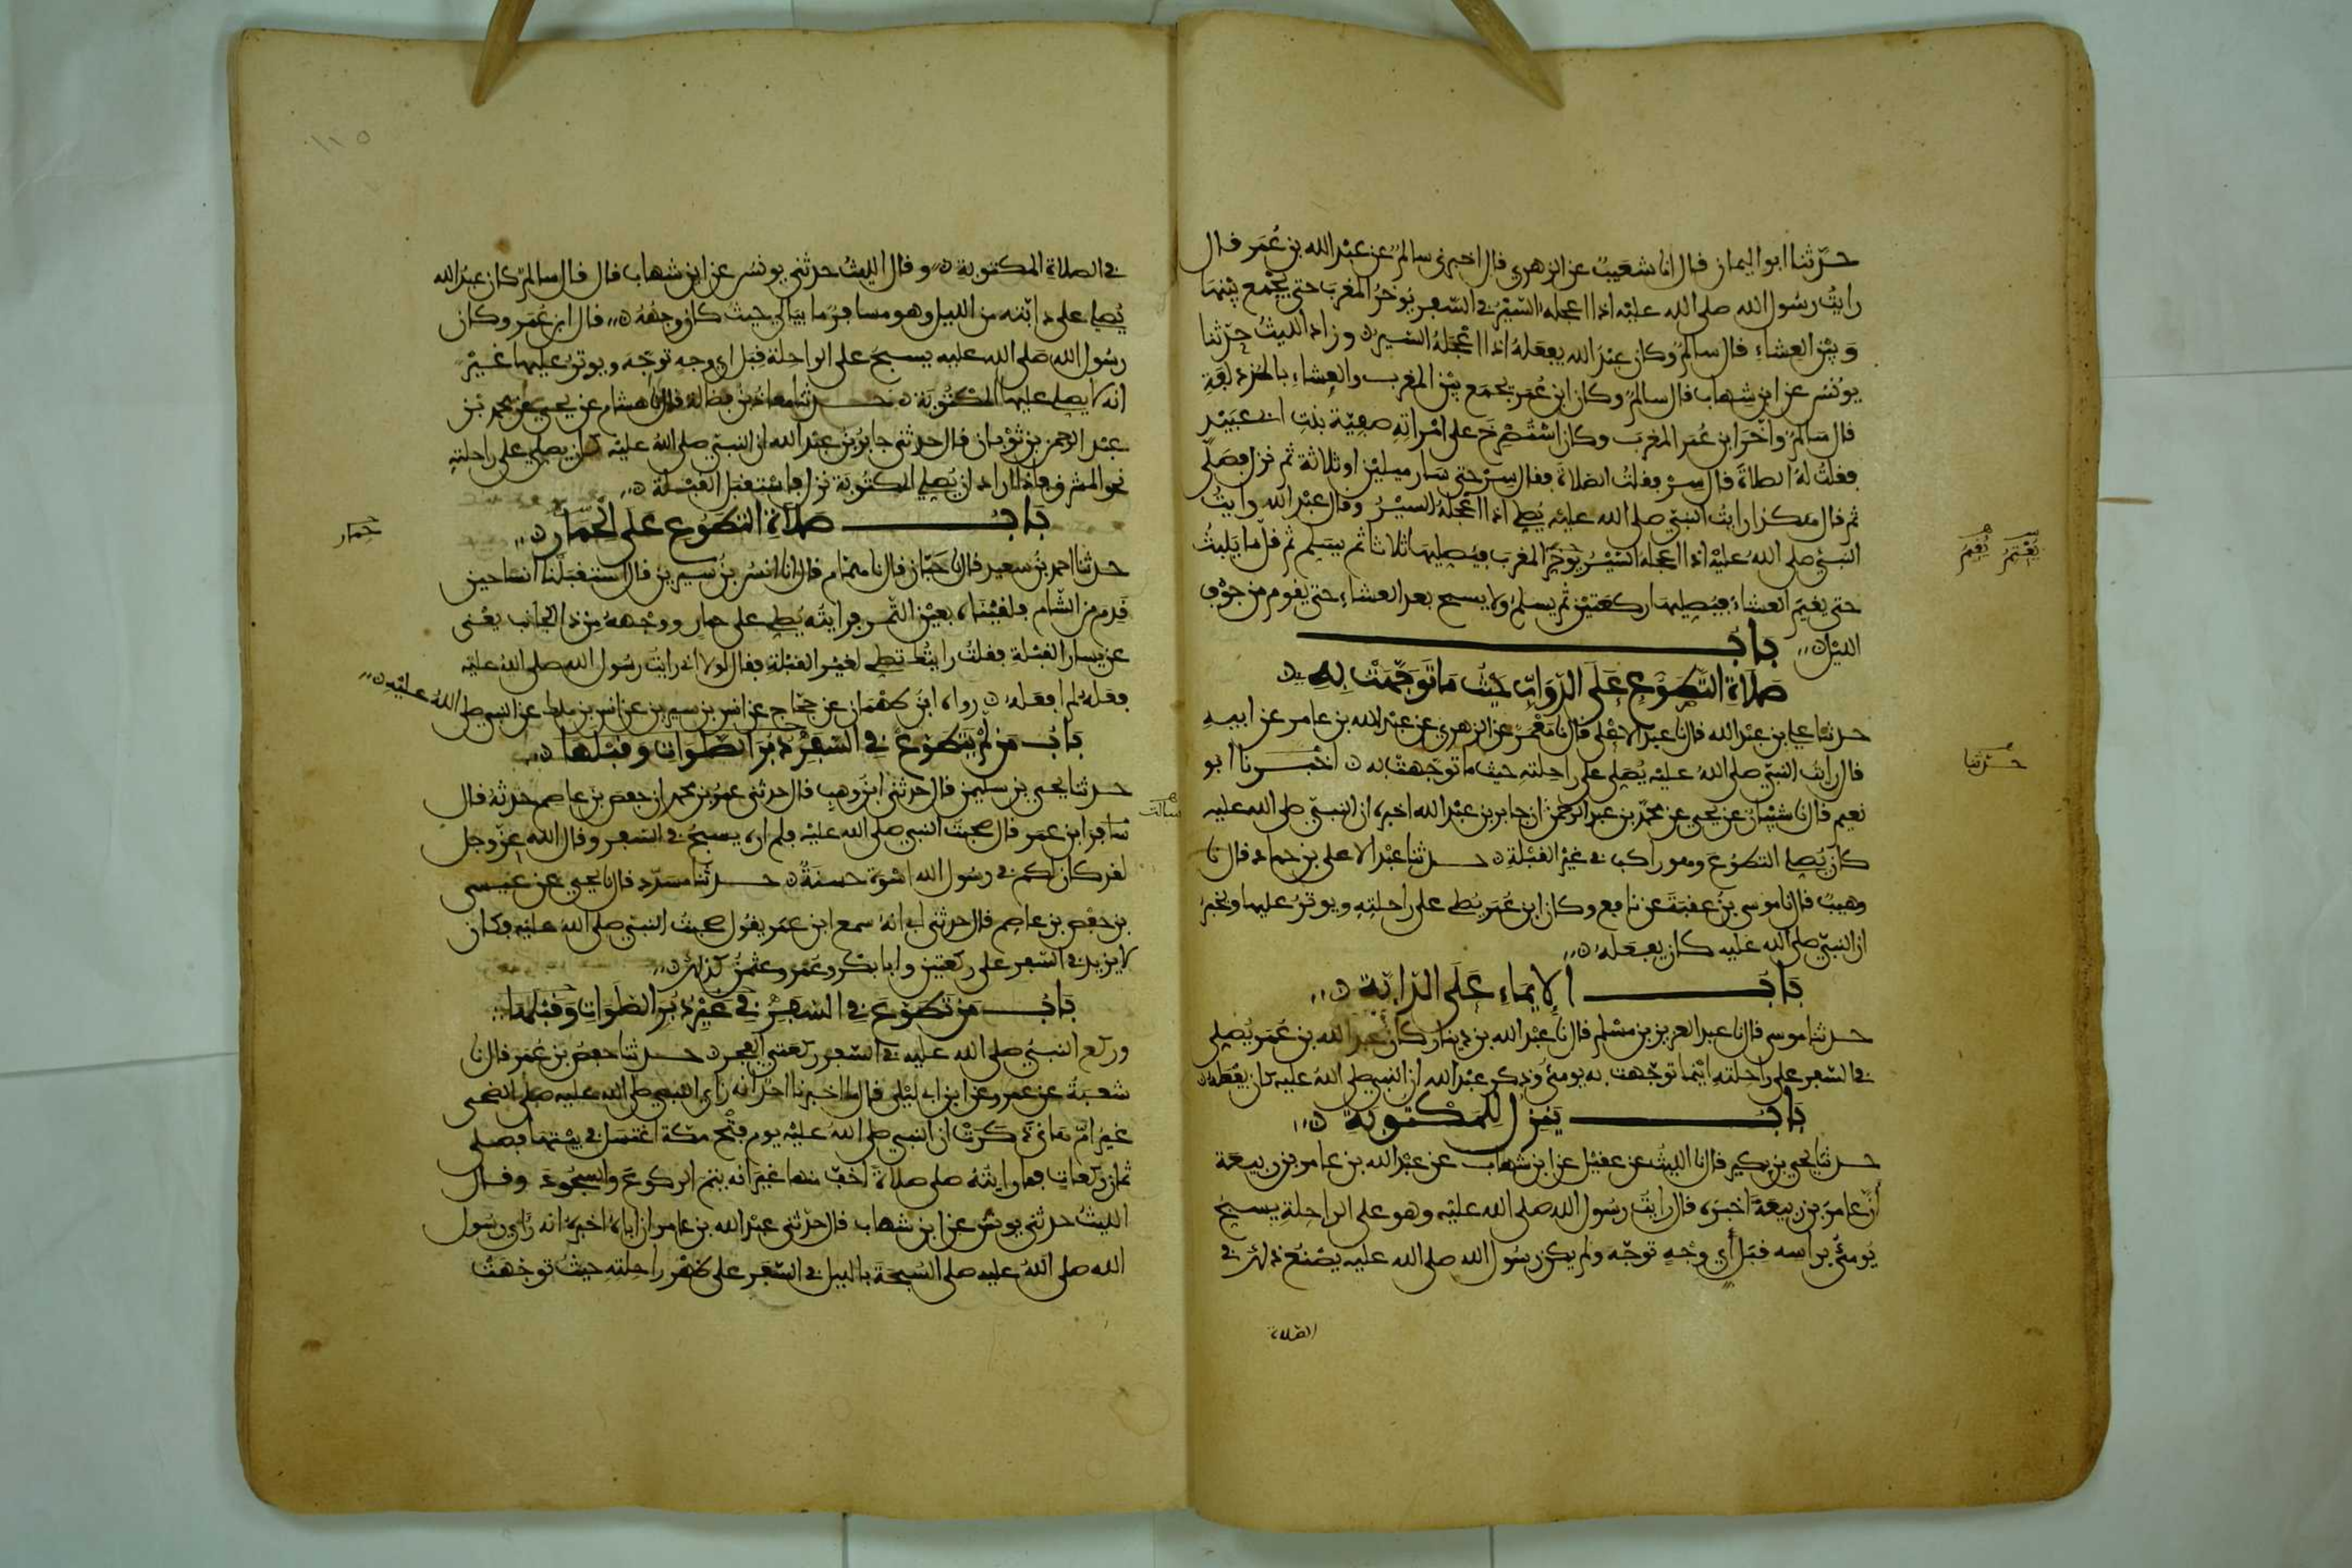 حدثنا ابو اليمان قال انا شعيب عن الزهري قال اخبرني سالم عن عبد الله بن عمر قال
رايت رسول الله صلى الله عليه اذا اعجله السير في السفر يوخر المغرب حتى يجمع بينها
وبين العشاء قال سالم وكان عبد الله يفعله اذا اعجله السير وزاد الليث حدثنا
يونس عن ابن شهاب قال سالم وكان ابن عمر يجمع بين المغرب والعشاء بالمزدلفة
قال سالم واخر ابن عمر المغرب وكان استصرخ على امراته صفية بنت ابي عبيد
فقلت له الصلاة قال سر فقلت الصلاة فقال سر حتى سار ميلين او ثلاثة ثم نزل فصلى
ثم قال هكذا رايت النبي صلى الله عليه يصلي اذا اعجله السير وقال عبد الله رايت
النبي صلى الله عليه اذا اعجله السير يوخر المغرب فيصليها ثلاثا ثم يسلم ثم قل ما يلبث
يعتم يقيم
حتى يقيم العشاء فيصليها ركعتين ثم يسلم ولا يسبح بعد العشاء حتى يقوم من جوف
الليل باب
صلاة التطوع على الدواب حيث ما توجهت به
حدثنا علي بن عبد الله قال نا عبد الاعلى قال نا معمر عن الزهري عن عبد الله بن عامر عن ابيه
قال رايت النبي صلى الله عليه يصلي على راحلته حيث ما توجهت به اخبرنا ابو
حدثنا
نعيم قال نا شيبان عن يحيى عن محمد بن عبد الرحمن ان جابر بن عبد الله اخبره ان النبي صلى الله عليه
كان يصلي التطوع وهو راكب في غير القبلة حدثنا عبد الاعلى بن حماد قال نا
وهيب قال نا موسى بن عقبة عن نافع وكان ابن عمر يصلي على راحلته ويوتر عليها ويخبر
ان النبي صلى الله عليه كان يفعله
باب الايماء على الدابة
حدثنا موسى قال نا عبد العزيز بن مسلم قال نا عبد الله بن دينار كان عبد الله بن عمر يصلي
في السفر على راحلته اينما توجهت به يومئ وذكر عبد الله ان النبي صلى الله عليه كان يفعله
باب ينزل للمكتوبة
حدثنا يحيى بن بكير قال نا الليث عن عقيل عن ابن شهاب عن عبد الله بن عامر بن ربيعة
ان عامر بن ربيعة اخبره قال رايت رسول الله صلى الله عليه وهو على الراحلة يسبح
يومئ براسه قبل اي وجه توجه ولم يكن رسول الله صلى الله عليه يصنع ذلك في
الصلاة
١١٥
في الصلاة المكتوبة وقال الليث حدثني يونس عن ابن شهاب قال قال سالم كان عبد الله
يصلي على دابته من الليل وهو مسافر ما يبالي حيث كان وجهه قال ابن عمر وكان
رسول الله صلى الله عليه يسبح على الراحلة قبل اي وجه توجه ويوتر عليها غير
انه لا يصلي عليها المكتوبة حدثنا معاذ بن فضالة قال نا هشام عن يحيى عن محمد بن
عبد الرحمن بن ثوبان قال حدثني جابر بن عبد الله ان النبي صلى الله عليه كان يصلي على راحلته
نحو المشرق فاذا اراد ان يصلي المكتوبة نزل فاستقبل القبلة
باب صلاة التطوع على الحمار
حمار
حدثنا احمد بن سعيد قال نا حبان قال نا همام قال انا انس بن سيرين قال استقبلنا انسا حين
قدم من الشام فلقيناه بعين التمر فرايته يصلي على حمار ووجهه من ذا الجانب يعني
عن يسار القبلة فقلت رايتك تصلي لغير القبلة فقال لولا اني رايت رسول الله صلى الله عليه
فعله لم افعله رواه ابن طهمان عن حجاج عن انس بن سيرين عن انس بن ملك عن النبي صلى الله عليه
باب من لم يتطوع في السفر دبر الصلوات وقبلها
حدثنا يحيى بن سليمن قال حدثني ابن وهب قال حدثني عمر بن محمد ان حفص بن عاصم حدثه قال
سالت
سافر ابن عمر قال صحبت النبي صلى الله عليه فلم اره يسبح في السفر وقال الله عز وجل
لقد كان لكم في رسول الله اسوة حسنة حدثنا مسدد قال نا يحيى عن عيسى
بن حفص بن عاصم قال حدثني ابي انه سمع ابن عمر يقول صحبت النبي صلى الله عليه وكان
لا يزيد في السفر على ركعتين وابا بكر وعمر وعثمن كذلك
باب من تطوع في السفر في غير دبر الصلوات وقبلها
وركع النبي صلى الله عليه في السفر ركعتي الفجر حدثنا حفص بن عمر قال نا
شعبة عن عمرو عن ابن ابي ليلى قال ما اخبرنا احد انه راى النبي صلى الله عليه صلى الضحى
غير ام هانئ ذكرت ان النبي صلى الله عليه يوم فتح مكة اغتسل في بيتها فصلى
ثمان ركعات فما رايته صلى صلاة اخف منها غير انه يتم الركوع والسجود وقال
الليث حدثني يونس عن ابن شهاب قال حدثني عبد الله بن عامر ان اباه اخبره انه راى رسول
الله صلى الله عليه صلى السبحة بالليل في السفر على ظهر راحلته حيث توجهت